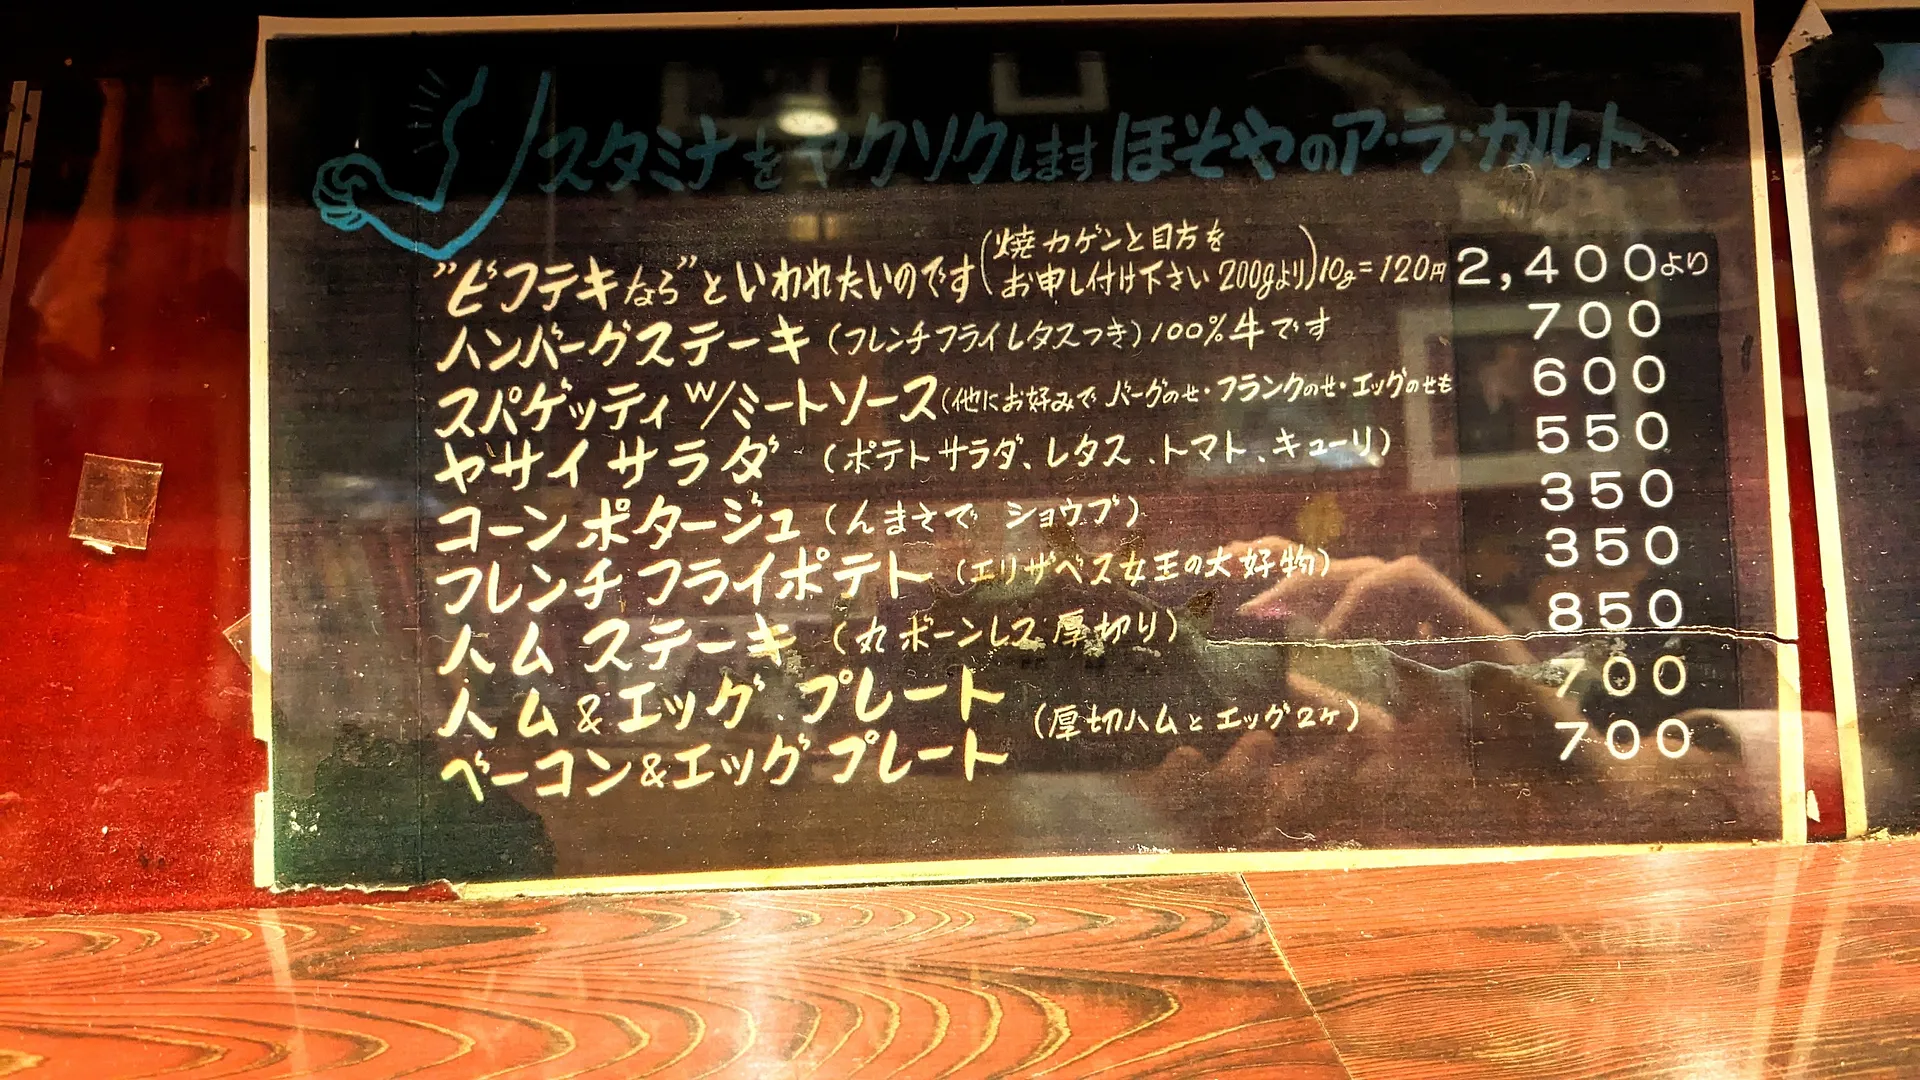 スタミナをヤクソクしますほそやのア・ラ・カルト
"ビフテキなら"といわれたいのです(焼カゲンと目方をお申し付け下さい 200gより)10g=120円 2,400より
ハンバーグステーキ(フレンチフライレタスつき)100%牛です 700
スパゲッティ w/ミートソース(他にお好みで バーグのせ・フランクのせ・エッグのせも 600
ヤサイサラダ (ポテトサラダ、レタス、トマト、キューリ) 550
コーンポタージュ (んまさで ショウブ) 350
フレンチフライポテト (エリザベス女王の大好物) 350
ハムステーキ (丸ボーンレス厚切り) 850
ハム&エッグ プレート 700
(厚切ハムとエッグ2ヶ)
ベーコン&エッグ プレート 700